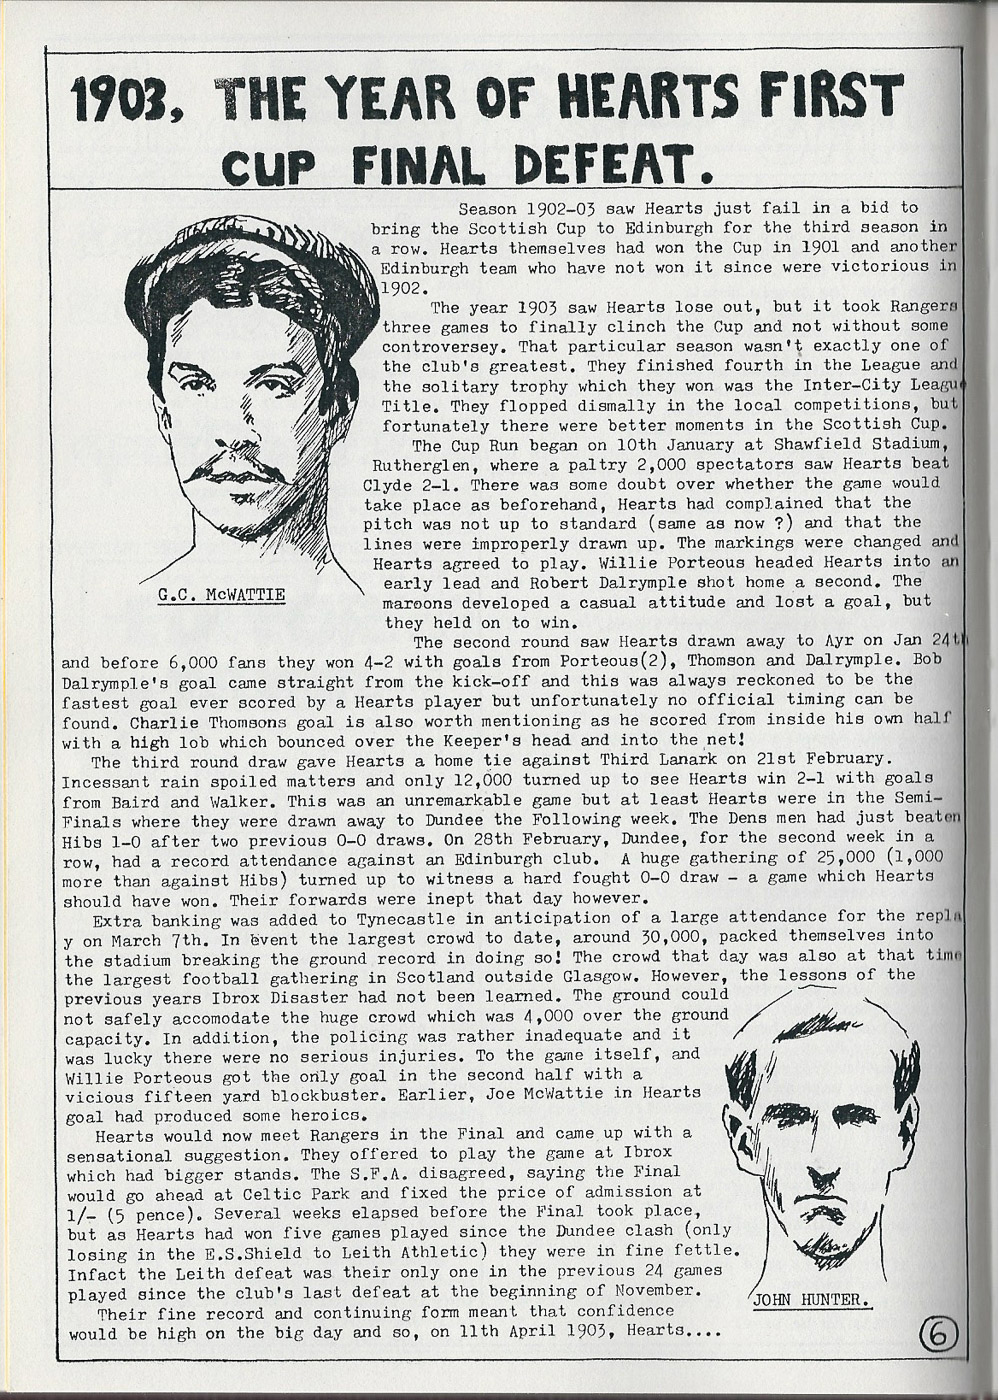 1903, THE YEAR OF HEARTS FIRST
CUP FINAL DEFEAT.
Season 1902-03 saw Hearts just fail in a bid to
bring the Scottish Cup to Edinburgh for the third season in
a row. Hearts themselves had won the Cup in 1901 and another
Edinburgh team who have not won it since were victorious in
1902.
The year 1903 saw Hearts lose out, but it took Rangers
three games to finally clinch the Cup and not without some
controversey. That particular season wasn't exactly one of
the club's greatest. They finished fourth in the League and
the solitary trophy which they won was the Inter-City Leagu
Title. They flopped dismally in the local competitions, but
fortunately there were better moments in the Scottish Cup.
The Cup Run began on 10th January at Shawfield Stadium,
Rutherglen, where a paltry 2,000 spectators saw Hearts beat
Clyde 2-1. There was some doubt over whether the game would
take place as beforehand, Hearts had complained that the
pitch was not up to standard (same as now ?) and that the
lines were improperly drawn up. The markings were changed and
Hearts agreed to play. Willie Porteous headed Hearts into an
early lead and Robert Dalrymple shot home a second. The
maroons developed a casual attitude and lost a goal, but
they held on to win.
G.C. McWATTIE
The second round saw Hearts drawn away to Ayr on Jan 24th
and before 6,000 fans they won 4-2 with goals from Porteous(2), Thomson and Dalrymple. Bob
Dalrymple's goal came straight from the kick-off and this was always reckoned to be the
fastest goal ever scored by a Hearts player but unfortunately no official timing can be
found. Charlie Thomsons goal is also worth mentioning as he scored from inside his own half
with a high lob which bounced over the Keeper's head and into the net!
The third round draw gave Hearts a home tie against Third Lanark on 21st February.
Incessant rain spoiled matters and only 12,000 turned up to see Hearts win 2-1 with goals
from Baird and Walker. This was an unremarkable game but at least Hearts were in the Semi-
Finals where they were drawn away to Dundee the Following week. The Dens men had just beaten
Hibs 1-0 after two previous 0-0 draws. On 28th February, Dundee, for the second week in a
row, had a record attendance against an Edinburgh club. A huge gathering of 25,000 (1,000
more than against Hibs) turned up to witness a hard fought 0-0 draw - a game which Hearts
should have won. Their forwards were inept that day however.
Extra banking was added to Tynecastle in anticipation of a large attendance for the repla
y on March 7th. In event the largest crowd to date, around 30,000, packed themselves into
the stadium breaking the ground record in doing so! The crowd that day was also at that time
the largest football gathering in Scotland outside Glasgow. However, the lessons of the
previous years Ibrox Disaster had not been learned. The ground could
not safely accomodate the huge crowd which was 4,000 over the ground
capacity. In addition, the policing was rather inadequate and it
was lucky there were no serious injuries. To the game itself, and
Willie Porteous got the only goal in the second half with a
vicious fifteen yard blockbuster. Earlier, Joe McWattie in Hearts
goal had produced some heroics.
Hearts would now meet Rangers in the Final and came up with a
sensational suggestion. They offered to play the game at Ibrox
which had bigger stands. The S.F.A. disagreed, saying the Final
would go ahead at Celtic Park and fixed the price of admission at
1/- (5 pence). Several weeks elapsed before the Final took place,
but as Hearts had won five games played since the Dundee clash (only
losing in the E.S.Shield to Leith Athletic) they were in fine fettle.
Infact the Leith defeat was their only one in the previous 24 games
played since the club's last defeat at the beginning of November.
Their fine record and continuing form meant that confidence
would be high on the big day and so, on 11th April 1903, Hearts....
JOHN HUNTER.
6